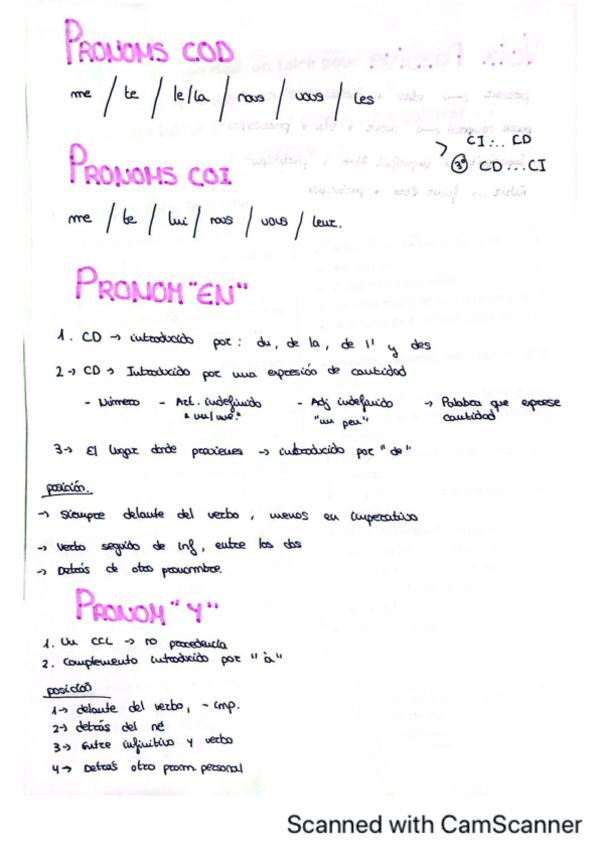 PRONOMS COD
me / te / le/la / nous / vous / les
> CI... CD
③ª CD...CI
PRONOMS COI
me / te / lui / nous / vous / leur.
PRONOM "EN"
1. CD → introducido por: du, de la, de l' y des
2 → CD → Introducido por una expresión de cantidad
- Número - Art. indefinido - Adj indefinido → Palabra que exprese cantidad
"un/une." "un peu"
3 → El lugar donde provienes → introducido por "de"
posición.
→ Siempre delante del verbo, menos en imperativo
→ Verbo seguido de inf, entre los dos
→ Detrás de otro pronombre.
PRONOM "Y"
1. Un CCL → no procedencia
2. Complemento introducido por "à"
posición
1 → delante del verbo, - imp.
2 → detrás del né
3 → Entre infinitivo y verbo
4 → Detrás otro pronm. personal
Scanned with CamScanner